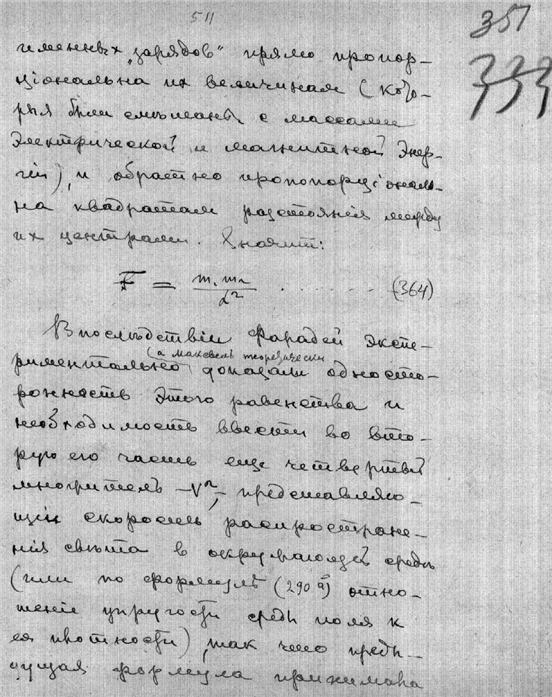 511
351
339
именныхъ „зарядов“ прямо пропор-
ціональна их величинам (кото-
рыя были смѣшаны с массами
электрической и магнитной энер-
гіи), и обратно пропорціональ-
на квадратам разстоянія между
их центрами. Значит:
F = m, m₂ / d² . . . . . . . (364)
Впослѣдствіи Фарадей экспе-
(а Максвель теоретически
риментально доказали односто-
ронность этого равенства и
необходимость ввести во вто-
рую его часть еще четвертый
множитель —V²,— представляю-
щій скорость распростране-
нія свѣта в окружающей средѣ
(или по формулѣ (290 a) отно-
шеніе упругости среды поля к
ея плотности), так что преды-
дущая формула принимала